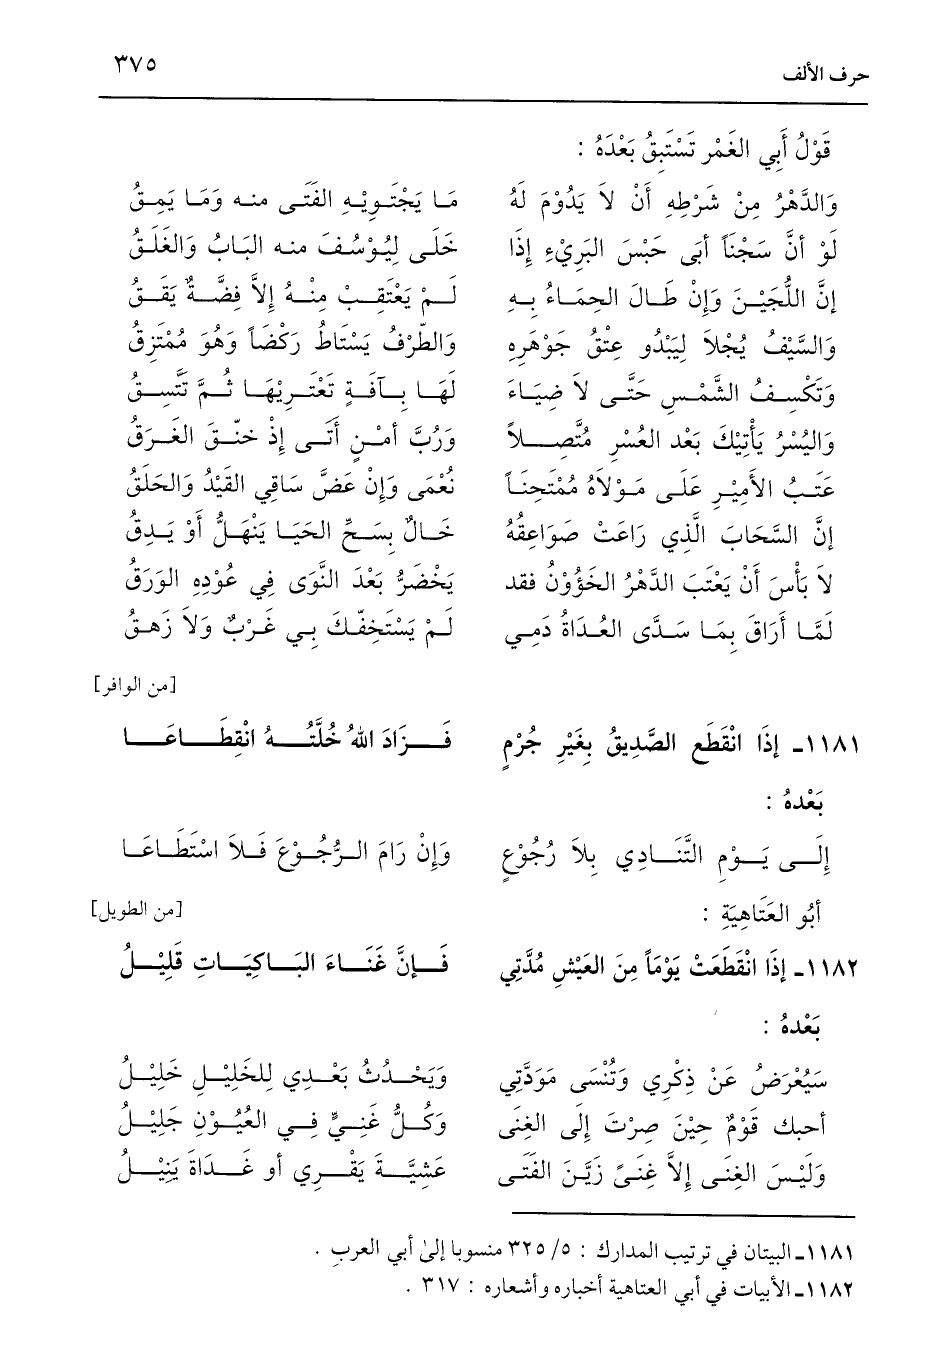 حرف الألف ٣٧٥
قَوْلُ أَبِي الغَمْرِ تَسْتَبِقُ بَعْدَهُ :
وَالدَّهْرُ مِنْ شَرْطِهِ أَنْ لاَ يَدُوْمَ لَهُ مَا يَجْتَوِيْهِ الفَتَى منه وَمَا يَمِقُ
لَوْ أنَّ سَجْنَاً أبَى حَبْسَ البَرِيْءِ إِذَا خَلَى لِيُوْسُفَ منه البَابُ وَالغَلَقُ
إنَّ اللُّجَيْنَ وَإِنْ طَالَ الحِمَاءُ بِهِ لَمْ يَعْتَقِبْ مِنْهُ إلاَّ فِضَّةٌ يَقَقُ
وَالسَّيْفُ يُجْلاَ لِيَبْدُو عِتْقُ جَوْهَرِهِ وَالطّرْفُ يَسْتَاطُ رَكْضَاً وَهْوَ مُمْتَزِقُ
وَتَكْسِفُ الشَّمْسِ حَتَّى لاَ ضِيَاءَ لَهَا بِآفَةٍ تَعْتَرِيْهَا ثُمَّ تَتَّسِقُ
وَاليُسْرُ يَأْتِيْكَ بَعْد العُسْرِ مُتَّصِلاً وَرُبَّ أمْنٍ أتَى إذْ خنَّقَ الغَرَقُ
عَتَبُ الأَمِيْرِ عَلَى مَوْلاَهُ مُمْتَحِنَاً نُعْمَى وَإِنْ عَضَّ سَاقِي القَيْدُ وَالحَلَقُ
إنَّ السَّحَابَ الَّذِي رَاعَتْ صَوَاعِقُهُ خَالٌ بِسَحِّ الحَيَا يَنْهَلُّ أَوْ يَدِقُ
لاَ بَأْسَ أَنْ يَعْتَبَ الدَّهْرُ الخَؤُوْنُ فقد يَخْضَرُّ بَعْدَ النَّوَى فِي عُوْدِهِ الوَرَقُ
لَمَّا أرَاقَ بِمَا سَدَّى العُدَاةُ دَمِي لَمْ يَسْتَخِفّكَ بِي غَرْبٌ وَلاَ زَهقُ
[من الوافر]
١١٨١ـ إذَا انْقَطَع الصَّدِيقُ بِغَيْرِ جُرْمٍ فَزَادَ اللهُ خُلَّتُهُ انْقِطَاعَا
بَعْدهُ :
إلَى يَوْمِ التَّنَادِي بِلاَ رُجُوْعٍ وَإنْ رَامَ الرُّجُوْعَ فَلاَ اسْتَطَاعَا
أبُو العَتَاهِيَةِ : [من الطويل]
١١٨٢ـ إذَا انْقَطَعَتْ يَوْمَاً مِنَ العَيْشِ مُدَّتِي فَإنَّ غَنَاءَ البَاكِيَاتِ قَلِيْلُ
بَعْدهُ :
سَيُعْرَضُ عَنْ ذِكْرِي وَتُنْسَى مَوَدَّتِي وَيَحْدُثُ بَعْدِي لِلخَلِيْلِ خَلِيْلُ
أحبك قَوْمٌ حِيْنَ صِرْتَ إلَى الغِنَى وَكُلُّ غَنِيٍّ فِي العُيُوْنِ جَلِيْلُ
وَلَيْسَ الغِنَى إلاَّ غِنَىً زَيَّنَ الفَتَى عَشِيَّةَ يَقْرِي أو غَدَاةَ يَنِيْلُ
١١٨١ـ البيتان في ترتيب المدارك : ٥/ ٣٢٥ منسوبا إلىٰ أبي العرب .
١١٨٢ـ الأبيات في أبي العتاهية أخباره وأشعاره : ٣١٧ .